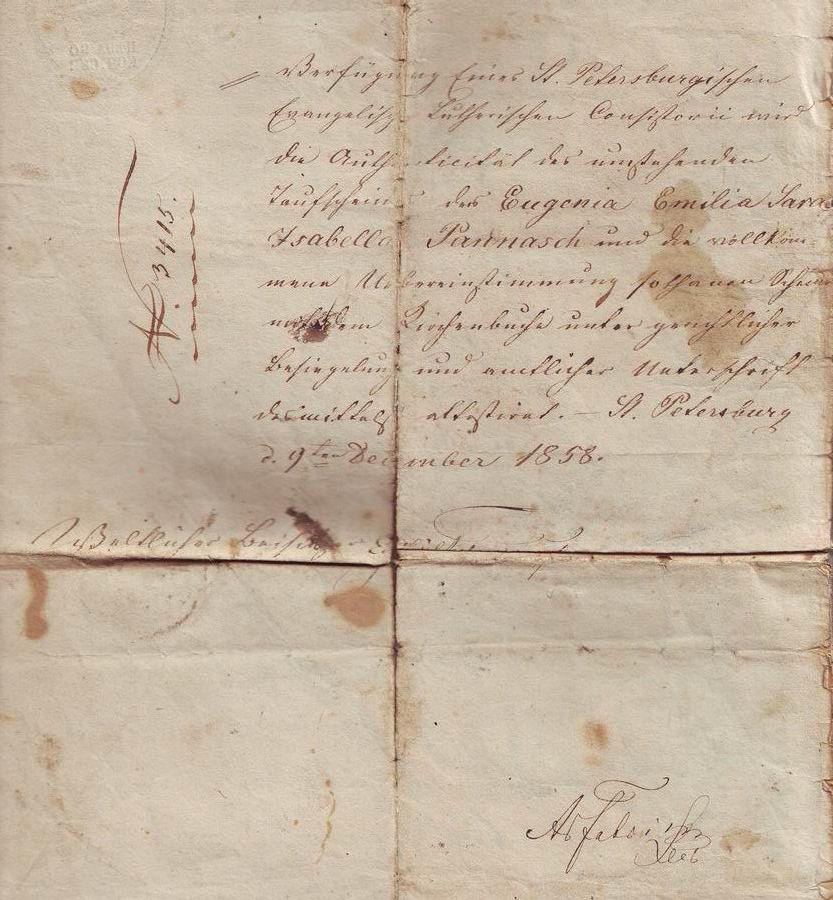 Verfügung Eines St. Petersburgischen
Evangelisch Lutherischen Consistorii wird
die Authenticität des umstehenden
Taufscheins der Eugenia Emilia Sara
Isabella Pannasch und die vollkom-
mene Uebereinstimmung sothanen Scheins
mit dem Kirchenbuche unter gerichtlicher
Besiegelung und amtlicher Unterschrift
desmittelst attestirt. – St. Petersburg
d. 9ten December 1858.
N. 3415.
Weltlicher Beisitzer